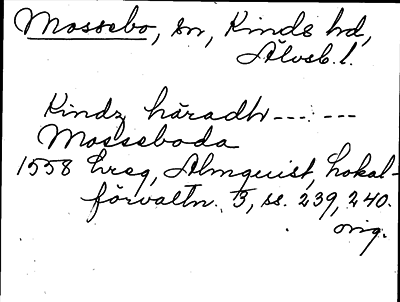 Mossebo, sn, Kinds hd,
Älvsb. l.
Kindz häradh --- ---
Mosseboda
1558 hreg, Almquist, Lokal-
förvaltn. 3, ss. 239, 240.
orig.